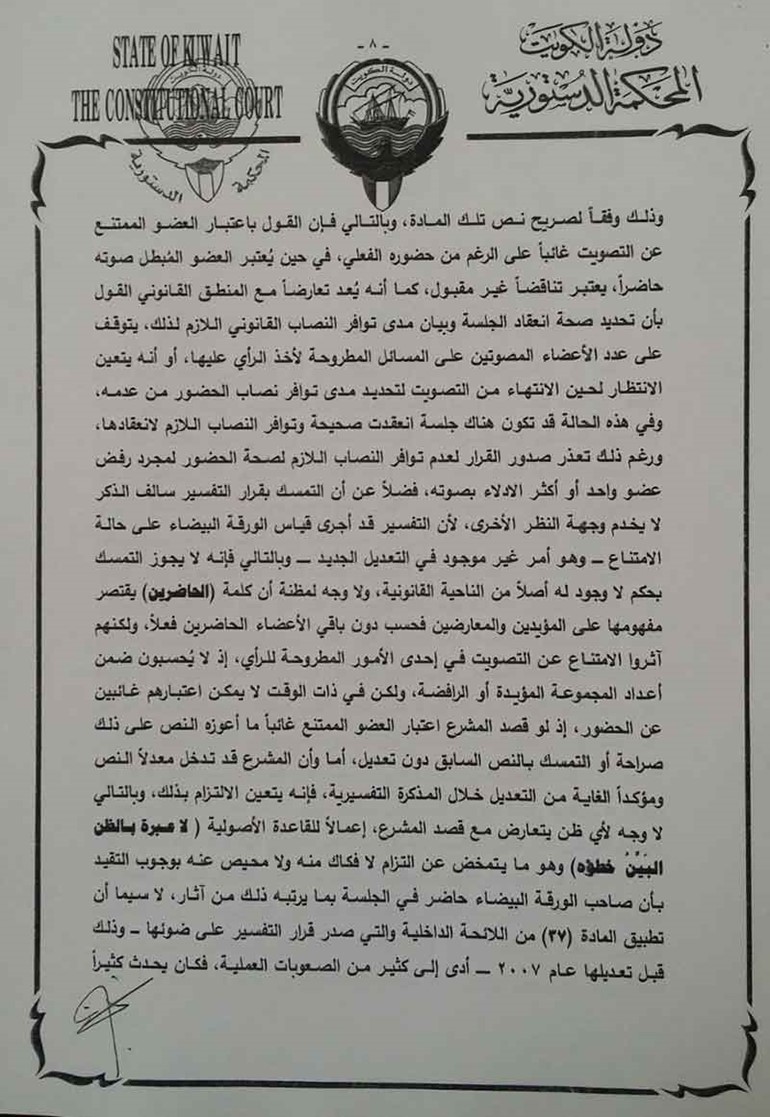 STATE OF KUWAIT
THE CONSTITUTIONAL COURT
- ٨ -
دولة الكويت
المحكمة الدستورية
دولة الكويت
المحكمة الدستورية
وذلك وفقاً لصريح نص تلك المادة، وبالتالي فإن القول باعتبار العضو الممتنع
عن التصويت غائباً على الرغم من حضوره الفعلي، في حين يُعتبر العضو المُبطل صوته
حاضراً، يعتبر تناقضاً غير مقبول، كما أنه يُعد تعارضاً مع المنطق القانوني القول
بأن تحديد صحة انعقاد الجلسة وبيان مدى توافر النصاب القانوني اللازم لذلك، يتوقف
على عدد الأعضاء المصوتين على المسائل المطروحة لأخذ الرأي عليها، أو أنه يتعين
الانتظار لحين الانتهاء من التصويت لتحديد مدى توافر نصاب الحضور من عدمه،
وفي هذه الحالة قد تكون هناك جلسة انعقدت صحيحة وتوافر النصاب اللازم لانعقادها،
ورغم ذلك تعذر صدور القرار لعدم توافر النصاب اللازم لصحة الحضور لمجرد رفض
عضو واحد أو أكثر الادلاء بصوته، فضلاً عن أن التمسك بقرار التفسير سالف الذكر
لا يخدم وجهة النظر الأخرى، لأن التفسير قد أجرى قياس الورقة البيضاء على حالة
الامتناع ــ وهو أمر غير موجود في التعديل الجديد ــ وبالتالي فإنه لا يجوز التمسك
بحكم لا وجود له أصلاً من الناحية القانونية، ولا وجه لمظنة أن كلمة (الحاضرين) يقتصر
مفهومها على المؤيدين والمعارضين فحسب دون باقي الأعضاء الحاضرين فعلاً، ولكنهم
آثروا الامتناع عن التصويت في إحدى الأمور المطروحة للرأي، إذ لا يُحسبون ضمن
أعداد المجموعة المؤيدة أو الرافضة، ولكن في ذات الوقت لا يمكن اعتبارهم غائبين
عن الحضور، إذ لو قصد المشرع اعتبار العضو الممتنع غائباً ما أعوزه النص على ذلك
صراحة أو التمسك بالنص السابق دون تعديل، أما وأن المشرع قد تدخل معدلاً النص
ومؤكداً الغاية من التعديل خلال المذكرة التفسيرية، فإنه يتعين الالتزام بذلك، وبالتالي
لا وجه لأي ظن يتعارض مع قصد المشرع، إعمالاً للقاعدة الأصولية ( لا عبرة بالظن
البَيّنُ خطؤه) وهو ما يتمخض عن التزام لا فكاك منه ولا محيص عنه بوجوب التقيد
بأن صاحب الورقة البيضاء حاضر في الجلسة بما يرتبه ذلك من آثار، لا سيما أن
تطبيق المادة (٣٧) من اللائحة الداخلية والتي صدر قرار التفسير على ضوئها ــ وذلك
قبل تعديلها عام ٢٠٠٧ ــ أدى إلى كثير من الصعوبات العملية، فكان يحدث كثيراً